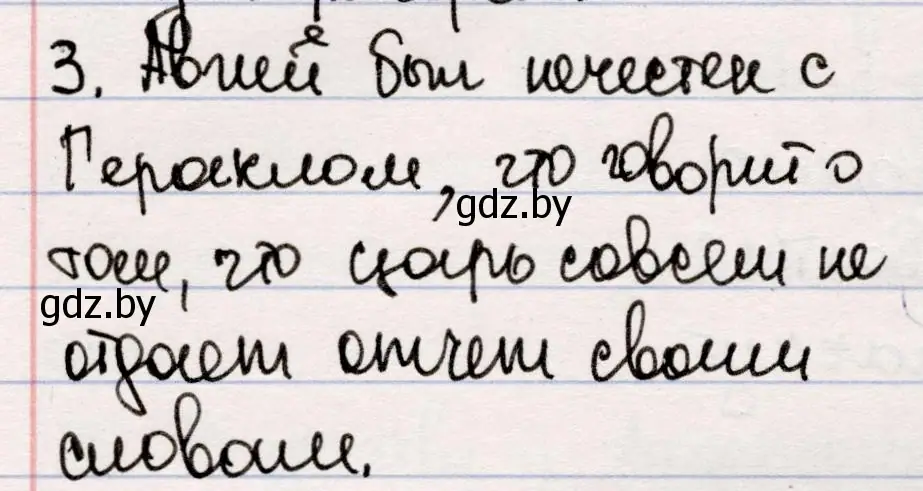 3. Авгий был нечестен с
Гераклом, что говорит о
gdz.by
том, что царь совсем не
gdz.by
отдает отчет своим
словам.